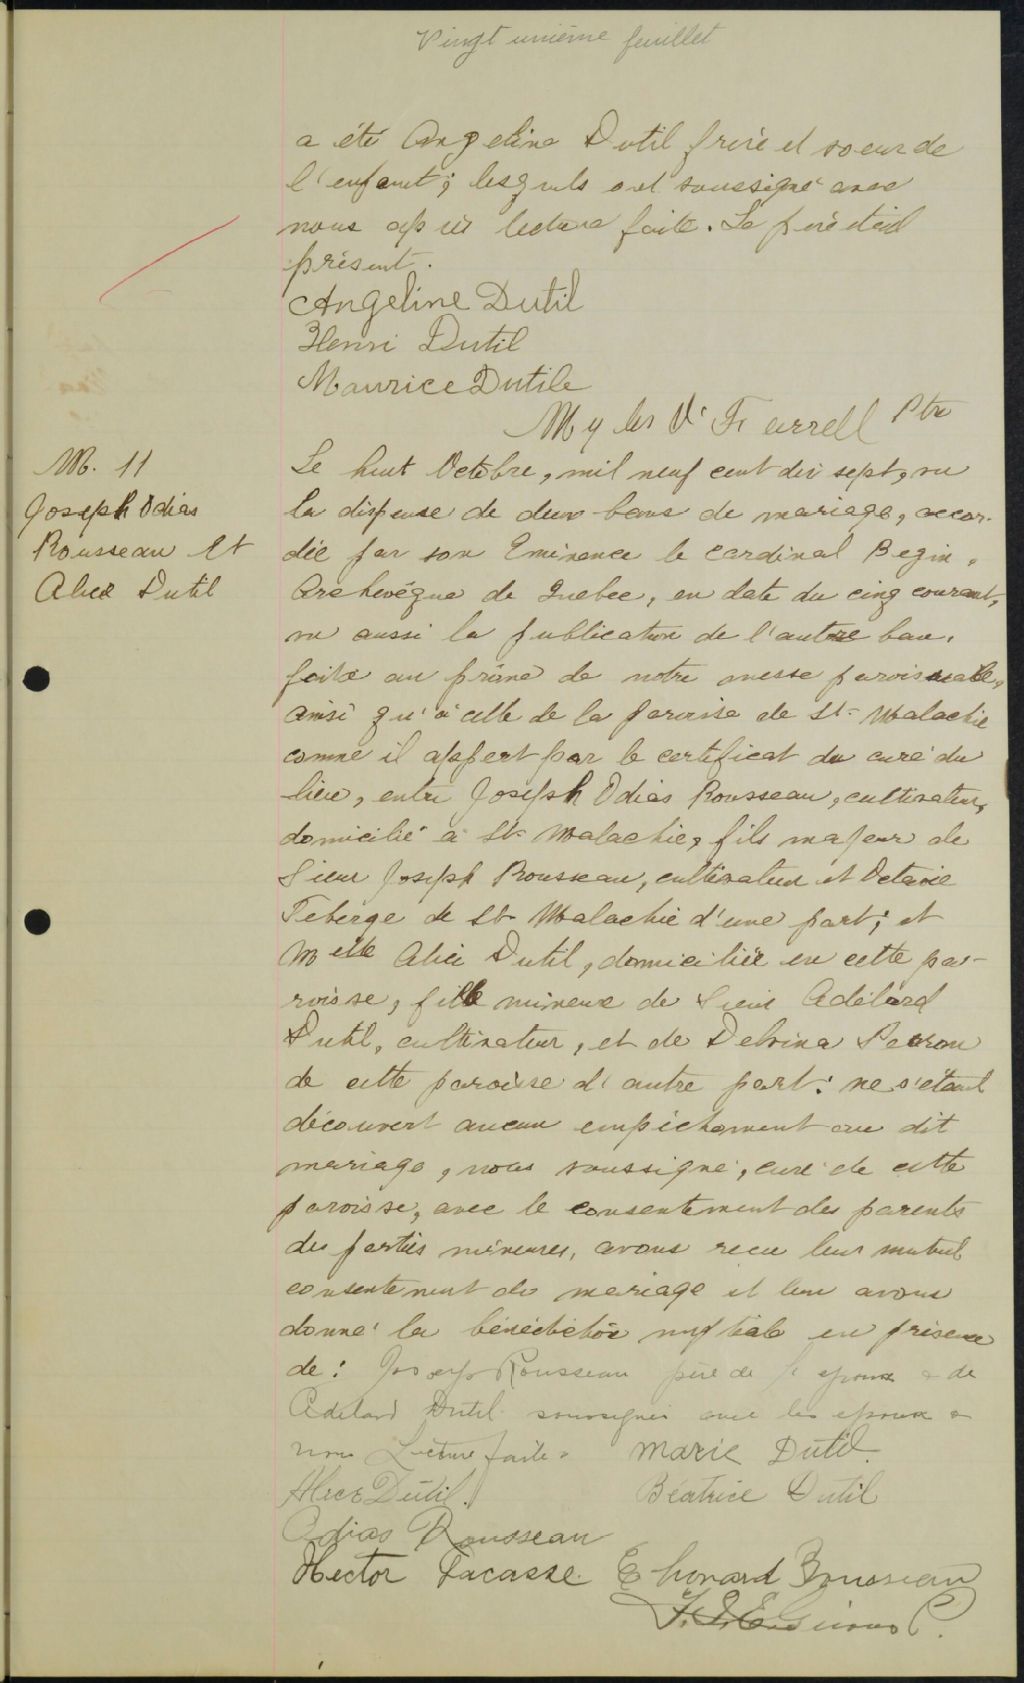 Vingt unième feuillet
a été Angelina Dutil frère et soeur de
l'enfant; lesquels ont soussigné avec
nous après lecture faite. Le père était
présent.
Angeline Dutil
Henri Dutil
Maurice Dutile
Ptre
M. 11
Joseph Odias
Rousseau et
Alice Dutil
Le huit Octobre, mil neuf cent dix sept, vu
la dispense de deux bans de mariage, accor-
dée par son Eminence le Cardinal Begin,
Archevêque de Quebec, en date du cinq courant,
vu aussi la publication de l'autre ban,
faite au prône de notre messe paroissiale,
ainsi qu'à celle de la paroisse de St- Malachie
comme il appert par le certificat du curé du
lieu, entre Joseph Odias Rousseau, cultivateur,
domicilié à St- Malachie, fils majeur de
Sieur Joseph Rousseau, cultivateur et Octavie
Feberge de St- Malachie d'une part; et
Melle Alice Dutil, domiciliée en cette pa-
roisse, fille mineure de Sieur Adélard
Dutil, cultivateur, et de Delvina
de cette paroisse d'autre part: ne s'étant
découvert aucun empêchement au dit
mariage, nous soussigné, curé de cette
paroisse, avec le consentement des parents
des parties mineures, avons reçu leur mutuel
consentement de mariage et leur avons
donné la bénédiction nuptiale en présence
de: Joseph Rousseau père de l'epoux & de
Adelard Dutil soussignés avec les epoux &
nous Lecture faite.
Marie Dutil.
Alice Dutil.
Béatrice Dutil
Odias Rousseau
Hector Lacasse
Rousseau